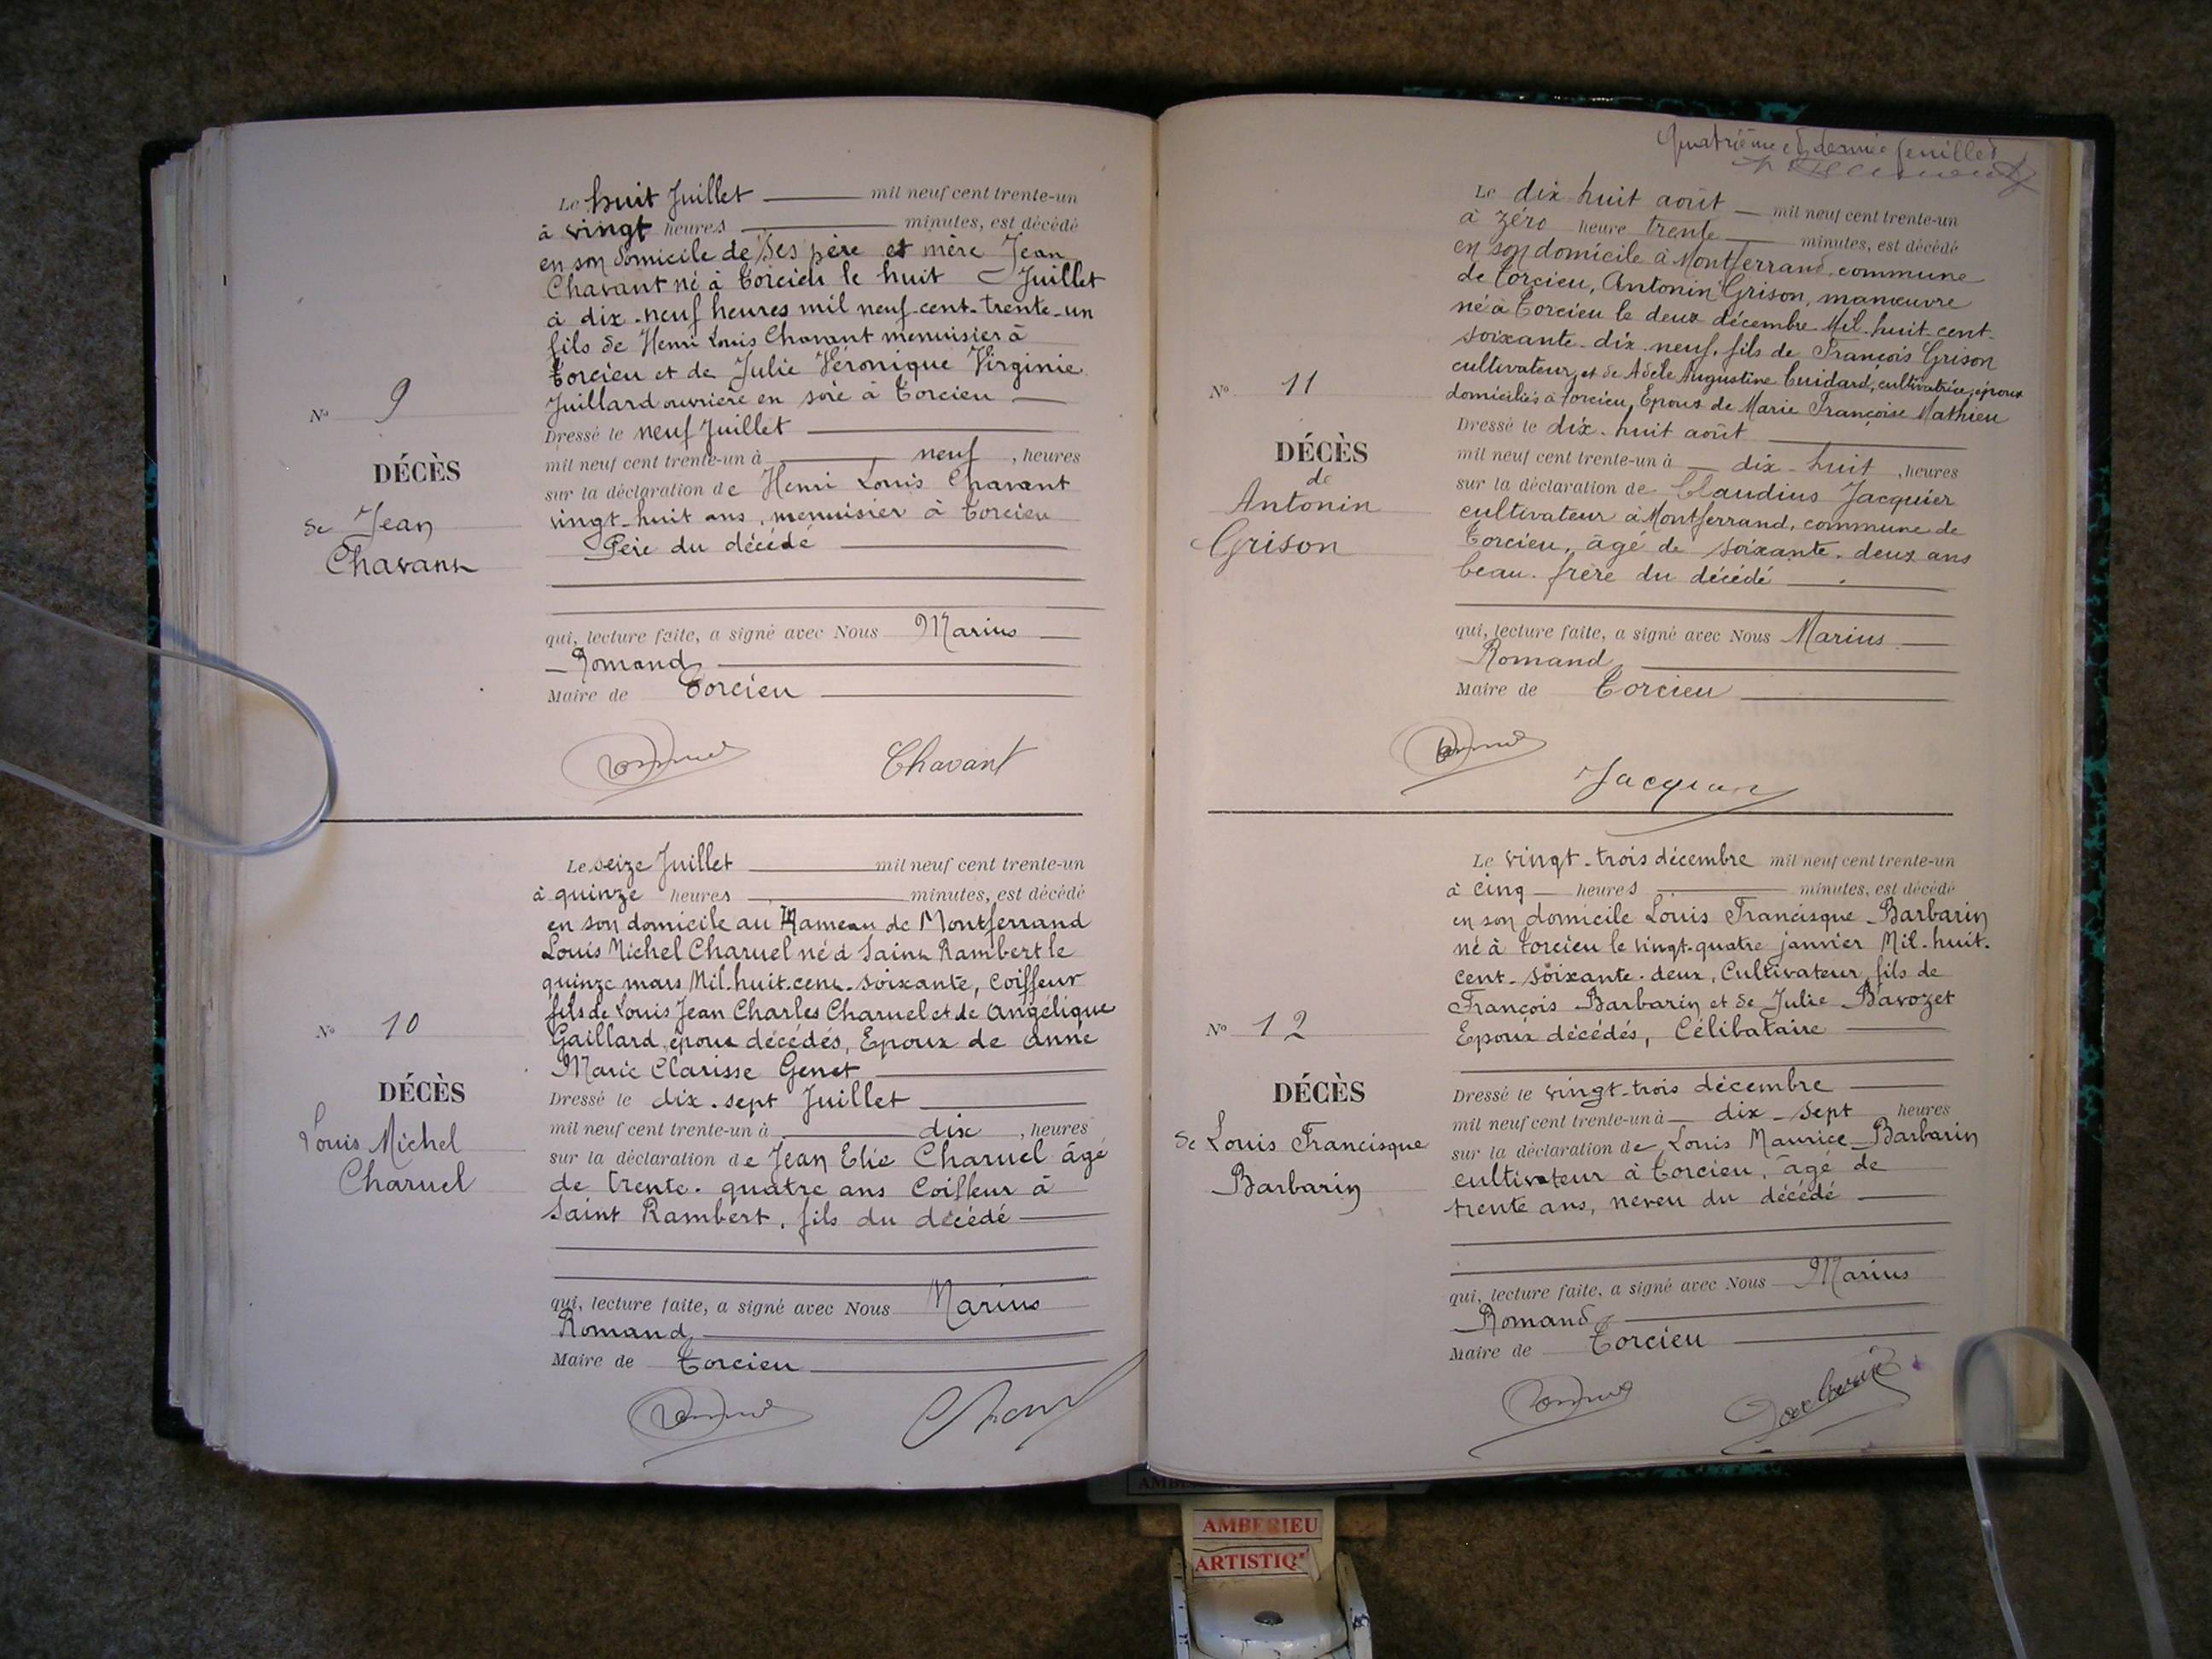 Le huit Juillet mil neuf cent trente-un
à vingt heures minutes, est décédé
en son domicile de Ses père et mère Jean
Chavant né à Torcieu le huit Juillet
à dix-neuf heures mil neuf-cent-trente-un
fils de Henri Louis Chavant menuisier à
Torcieu et de Julie Véronique Virginie
Juillard ouvrière en soie à Torcieu
Dressé le neuf Juillet
mil neuf cent trente-un à neuf, heures
sur la déclaration de Henri Louis Chavant
vingt-huit ans, menuisier à Torcieu
Père du décédé
qui, lecture faite, a signé avec Nous Marius
Romand
Maire de Torcieu
Chavant
N° 9
DÉCÈS
de Jean
Chavant
Le seize Juillet mil neuf cent trente-un
à quinze heures minutes, est décédé
en son domicile au Hameau de Montferrand
Louis Michel Charuel né à Saint Rambert le
quinze mars Mil-huit-cent-soixante, coiffeur
fils de Louis Jean Charles Charuel et de Angélique
Gaillard, époux décédés, Epoux de Anne
Marie Clarisse Genet
Dressé le dix-sept Juillet
mil neuf cent trente-un à dix, heures
sur la déclaration de Jean Elie Charuel âgé
de trente-quatre ans Coiffeur à
Saint Rambert, fils du décédé
qui, lecture faite, a signé avec Nous Marius
Romand
Maire de Torcieu
N° 10
DÉCÈS
Louis Michel
Charuel
Quatrième et dernier feuillet
Le dix huit août mil neuf cent trente-un
à zéro heure trente minutes, est décédé
en son domicile à Montferrand, commune
de Torcieu, Antonin Grison, manœuvre
né à Torcieu le deux décembre Mil-huit-cent-
soixante-dix-neuf, fils de François Grison
cultivateur, et de Adèle Augustine Cuidard, cultivatrice, époux
domiciliés à Torcieu, Epoux de Marie Françoise Mathieu
Dressé le dix-huit août
mil neuf cent trente-un à dix-huit, heures
sur la déclaration de Claudius Jacquier
cultivateur à Montferrand, commune de
Torcieu, âgé de soixante-deux ans
beau-frère du décédé
qui, lecture faite, a signé avec Nous Marius
Romand
Maire de Torcieu
N° 11
DÉCÈS
de
Antonin
Grison
Le vingt-trois décembre mil neuf cent trente-un
à cinq heures minutes, est décédé
en son domicile Louis Francisque Barbarin
né à Torcieu le vingt-quatre janvier Mil-huit-
cent-soixante-deux, Cultivateur, fils de
François Barbarin et de Julie Bavozet
Epoux décédés, Célibataire
Dressé le vingt-trois décembre
mil neuf cent trente-un à dix-sept heures
sur la déclaration de Louis Maurice Barbarin
cultivateur à Torcieu, âgé de
trente ans, neveu du décédé
qui, lecture faite, a signé avec Nous Marius
Romand
Maire de Torcieu
N° 12
DÉCÈS
de Louis Francisque
Barbarin
AMBERIEU
ARTISTIQ